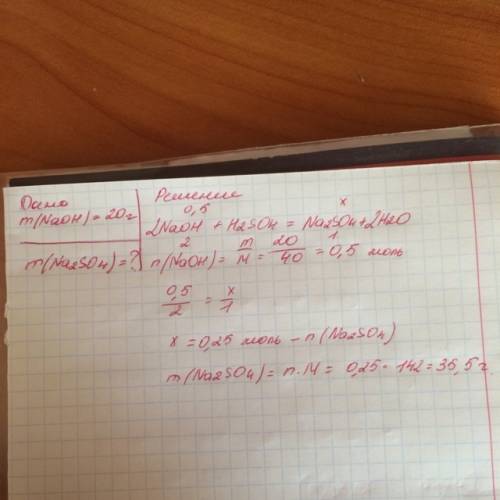 Дано
m(NaOH) = 20г
m(Na2SO4) = ?
Решение
0,5 x
2NaOH + H2SO4 = Na2SO4 + 2H2O
2 1
n(NaOH) = m/M = 20/40 = 0,5 моль
0,5/2 = x/1
x = 0,25 моль - n(Na2SO4)
m(Na2SO4) = n·M = 0,25 · 142 = 35,5 г.